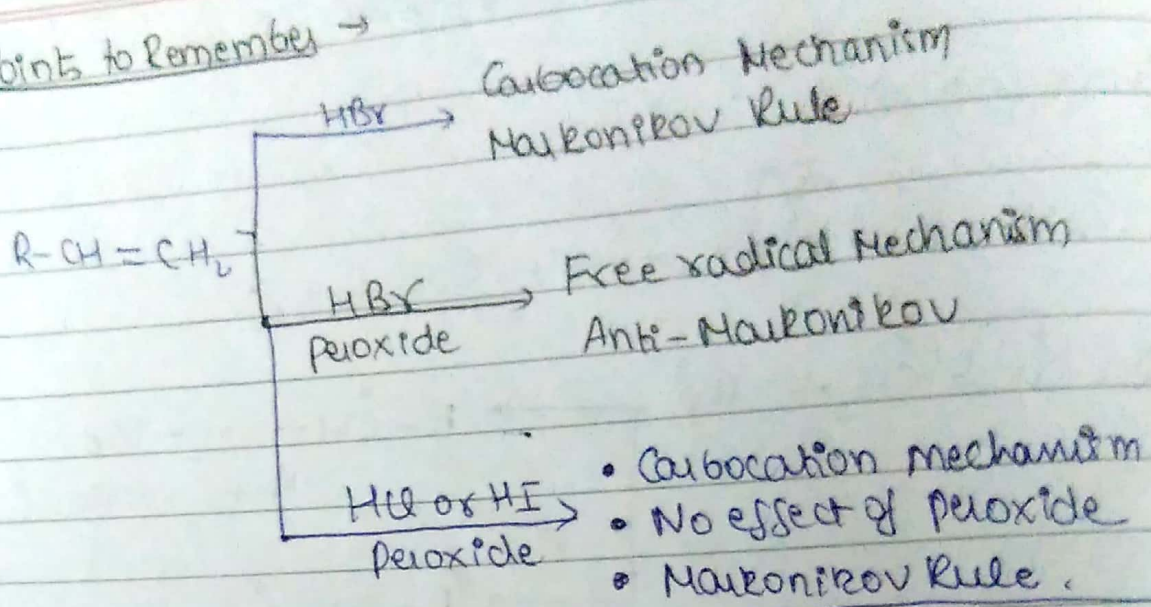 oints to Remember →
HBr
Carbocation Mechanism
Markonikov Rule
R-CH=CH₂
HBr
peroxide
Free radical Mechanism
Anti-Markonikov
HCl or HI
peroxide
• Carbocation mechanism
• No effect of peroxide
• Markonikov Rule.